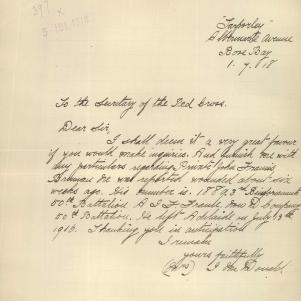 397 x
"Tarporley"
6 Avenue
Rose Bay
1. 7. /18
To the Secretary of the Red Cross.
Dear Sir,
I shall deem it a very great favour
if you would make inquiries. And furnish me with
any particulars regarding Private John Francis
Brennan he was reported wounded about six
weeks ago. His Number is. 188 3rd Reinforcements
50th Battalion A I F France
50th Battalion. He left Adelaide on July
1916. Thanking you in anticipation
I remain
yours faithfully
(Mrs)